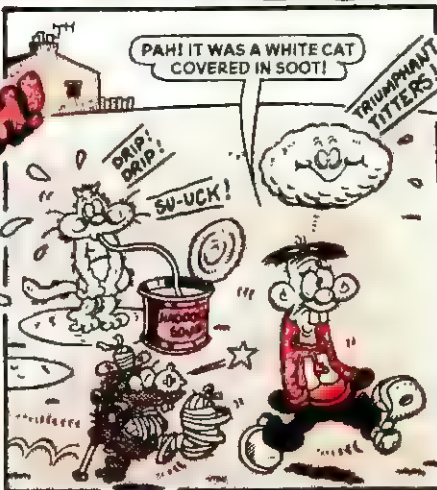 PAH! IT WAS A WHITE CAT
COVERED IN SOOT!
TRIUMPHANT
TITTERS!
DRIP!
DRIP!
SU-UCK!
SOUP